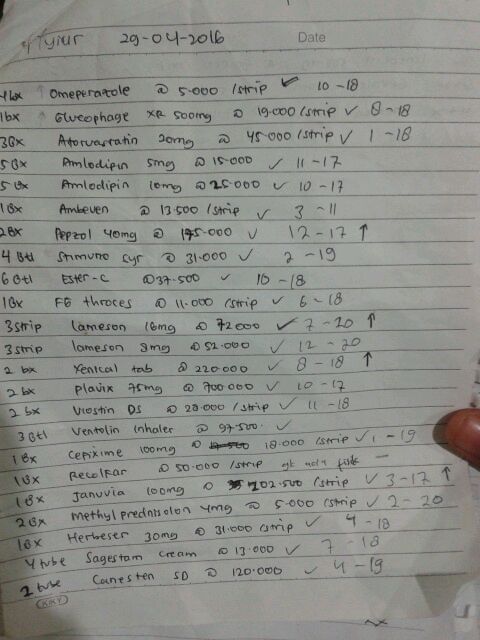 29-04-2016 Date
4bx ↑ Omeperatole @ 5.000 /strip ✓ 10-18
1bx ↑ Glucophage XR 500mg @ 19.000/strip ✓ 8-18
3Bx Atorvastatin 20mg @ 45.000/strip ✓ 1-18
5Bx Amlodipin 5mg @ 15.000 ✓ 11-17
5Bx Amlodipin 10mg @ 25.000 ✓ 10-17
1Bx Ambeven @ 13.500 /strip ✓ 3-11
2Bx Pepzol 40mg @ 175.000 ✓ 12-17 ↑
4 Btl Stimuno syr @ 31.000 ✓ 2-19
6 Btl Ester-C @ 37.500 ✓ 10-18
1Bx FG throces @ 11.000 /strip ✓ 6-18
3 strip Lameson 16mg @ 72000 ✓ 7-20 ↑
3 strip lameson 8mg @ 52.000 ✓ 12-20
2 bx Xenical tab @ 220.000 ✓ 8-18 ↑
2 bx Plavix 75mg @ 700.000 ✓ 10-17
2 bx Viostin DS @ 28.000 /strip ✓ 11-18
3 Btl Ventolin Inhaler @ 97.500. ✓
1Bx Cefixime 100mg @ 18.000 /strip ✓ 1-19
1Bx Recolfar @ 50.000 /strip —
1Bx Januvia 100mg @ 102.500 /strip ✓ 3-17 ↑
2Bx Methyl prednisolon 4mg @ 5.000 /strip ✓ 2-20
1Bx Herbeser 30mg @ 31.000 /strip ✓ 4-18
4 tube Sagestam cream @ 13.000 ✓ 7-18
2 tube Canesten SD @ 120.000 ✓ 4-19
KKY